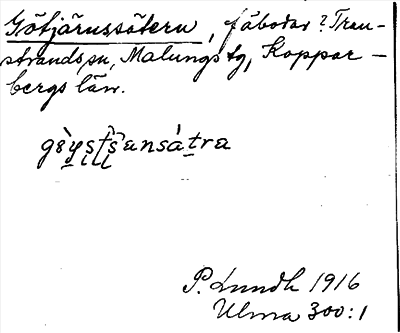 Götjärnssätern, fäbodar? Tran-
strands sn, Malungs tg, Koppar-
bergs län.
P. Lundh 1916
Ulma 300:1